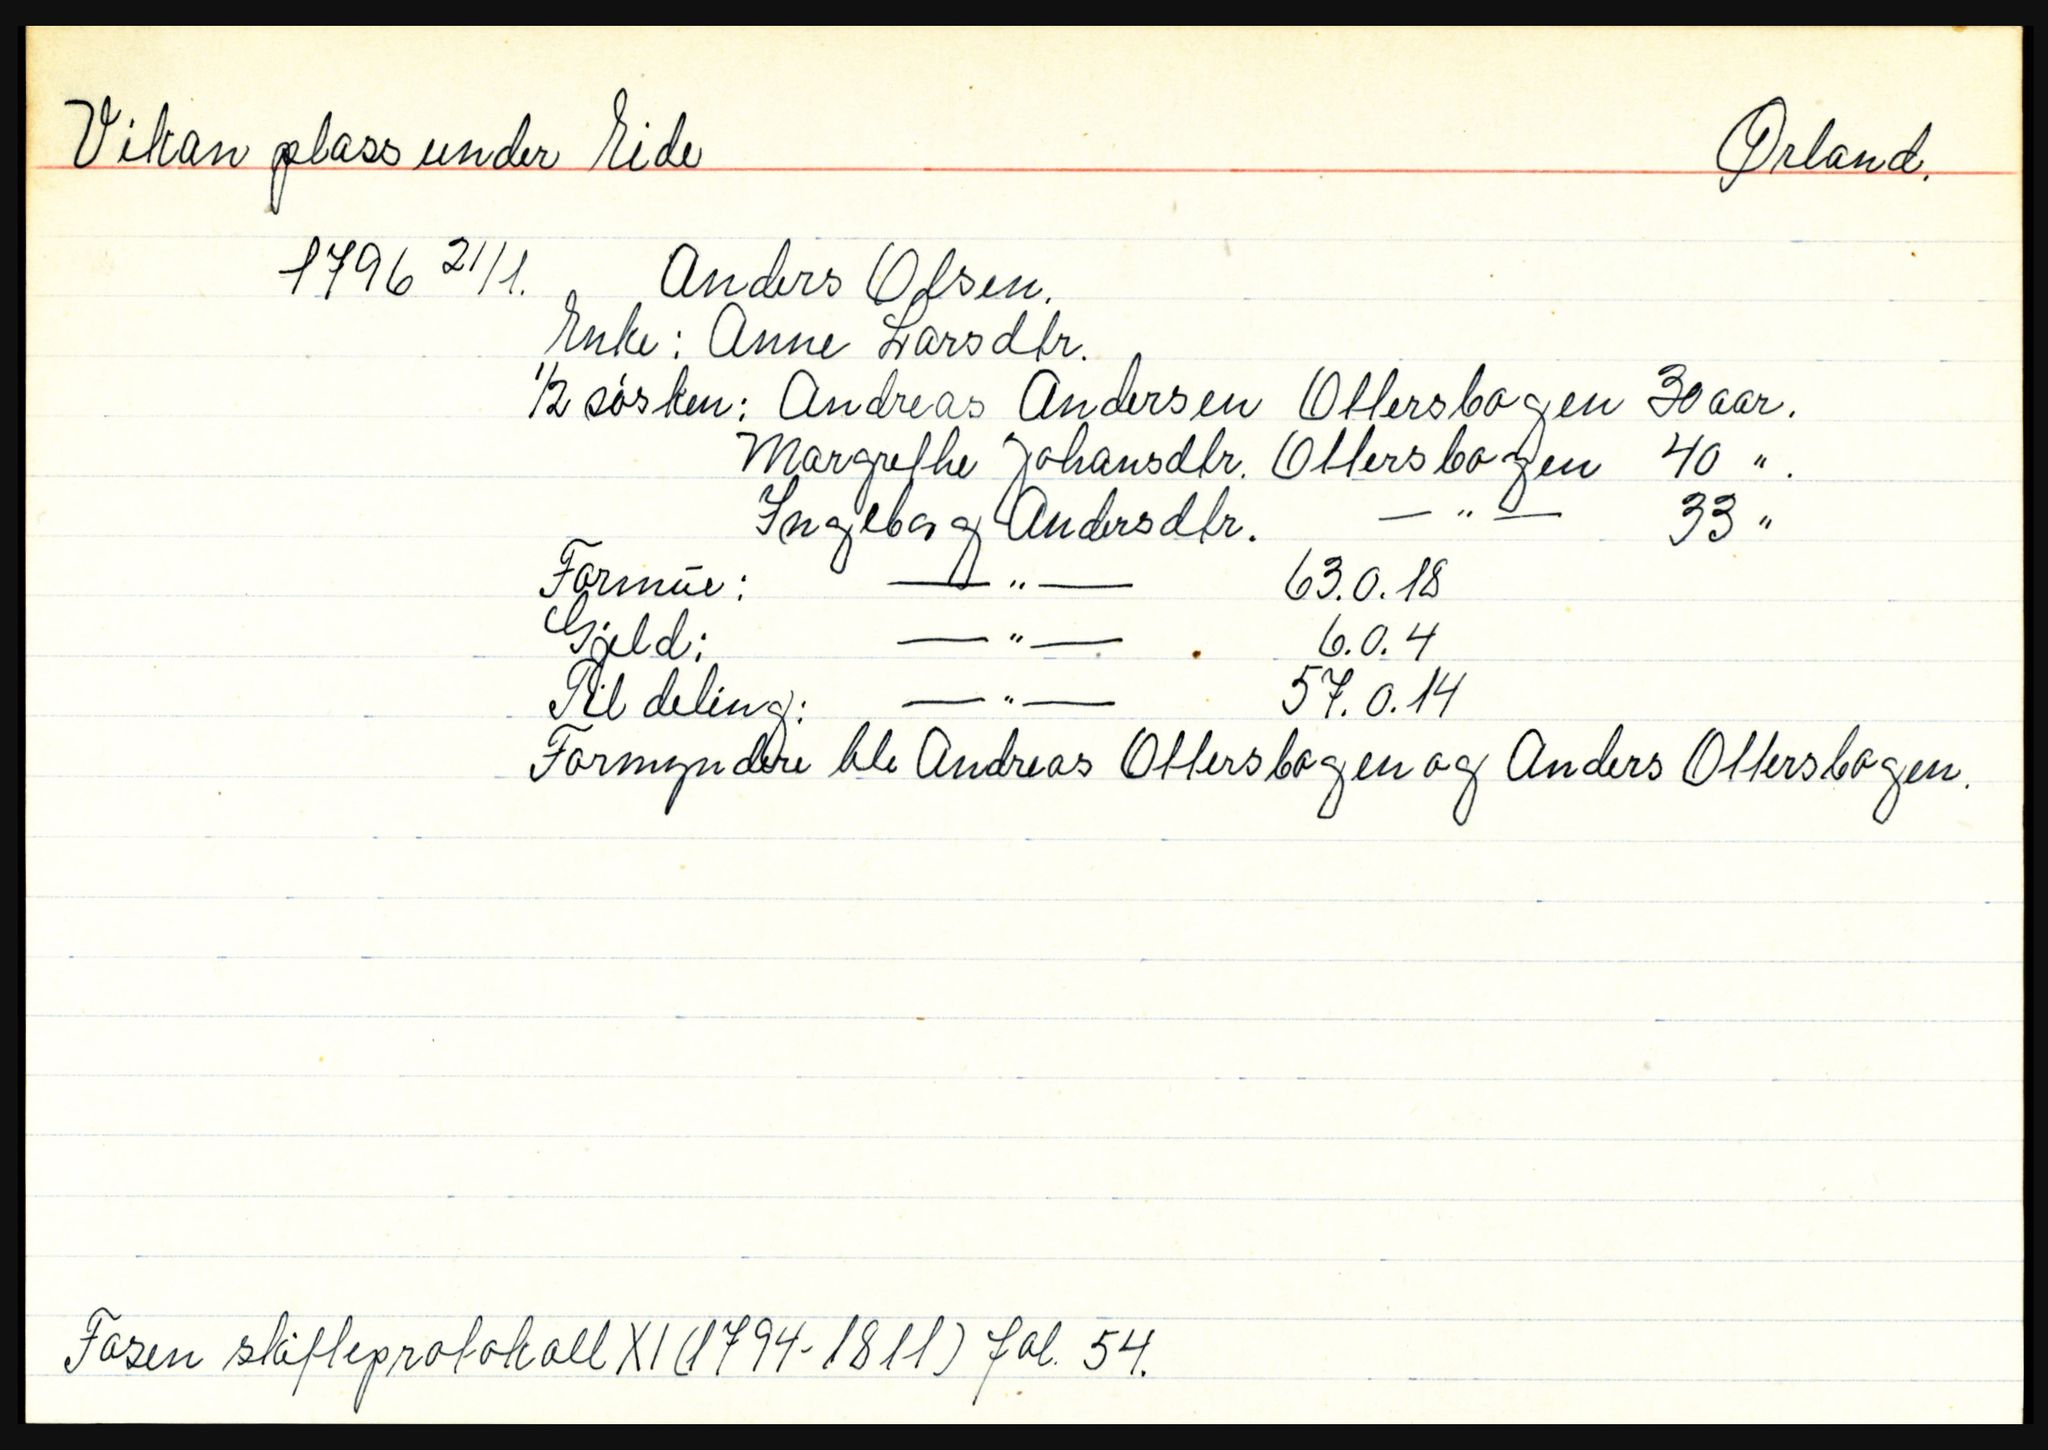 Vikan plass under Eide Ørland.
1796 21/1. Anders Olsen.
Enke: Anne Larsdtr.
1/2 søsken: Andreas Andersen Ottersbogen 30 aar.
Margrethe Johansdtr. Ottersbogen 40 " .
Ingeborg Andersdtr. — " — 33 "
Formúe: — " — 63.0.18
Gjeld: — " — 6.0.4
Til deling: — " — 57.0.14
Formyndere ble Andreas Ottersbogen og Anders Ottersbogen.
Fosen skifteprotokoll XI (1794-1811) fol. 54.